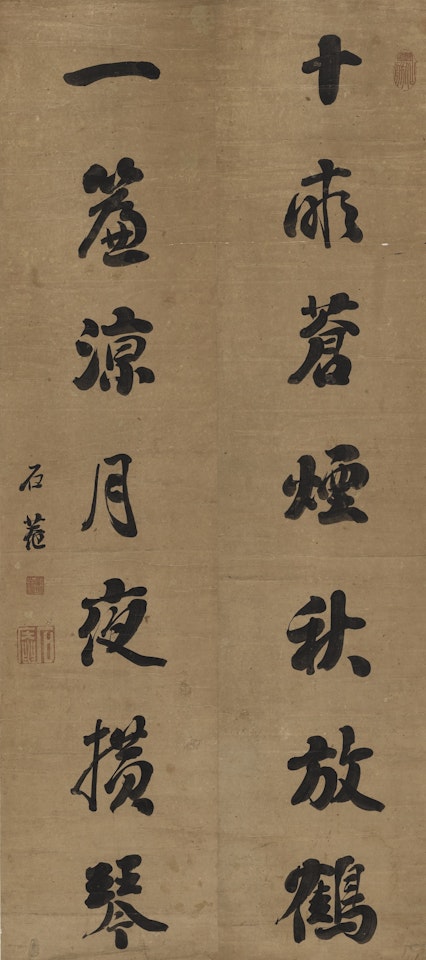 十畝蒼煙秋放鶴
一簾涼月夜横琴
石菴